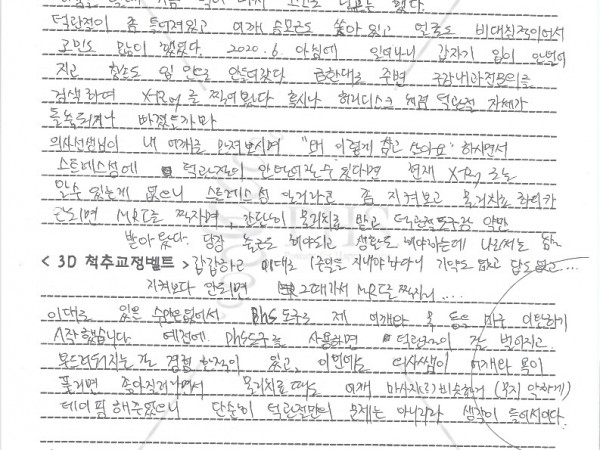 턱관절이 좀 틀어져있고 어깨 승모근도 솟아 있고 얼굴도 비대칭적이어서
고민도 많이 했었다. 2020. 6. 아침에 일어나니 갑자기 입이 안벌어
지고 음식도 입 안으로 안들어갔다. 급한대로 주변 구강내과전문의를
검색하여 X-Ray를 찍어 봤다 혹시나 허리디스크 처럼 턱관절 자체가
돌출되거나 빠졌을까봐
의사선생님이 내 어깨를 만져보시며 "왜 이렇게 참고 살아요" 하시면서
스트레스성에 턱관절이 안벌어질수 있다며 현재 X-Ray 로는
알수 있는게 없으니 스트레스성 일거라고 좀 지켜보고 물리치료 하다가
안되면 MRI를 찍자며, 간단히 물리치료 받고 턱근육도구랑 약만
받아 왔다. 당장 출근도 해야되고 생활도 해야하는데 나로서는
< 3D 척추교정벨트 > 갑갑하고 이대로 지내야 한다니 기약도 없고 답도 없고...
지켜보다 안되면 그때가서 MRI를 찍자니....
이대로 있을 수만은 없어서 Phs도구로 제 어깨와 목 등을 마구 이완하기
시작했습니다 예전에 Phs도구를 사용하면 턱관절이 잘 벌어지고
부드러워지는 걸 경험 한적이 있고, 이번에도 의사쌤이 어깨와 목이
풀리면 좋아질거라면서 물리치료 때도 어깨 마사지(?)비슷하게 (목지 약하게)
테이핑 해주셨으니 단순히 턱관절만의 문제는 아니리라 생각이 들어서이다.